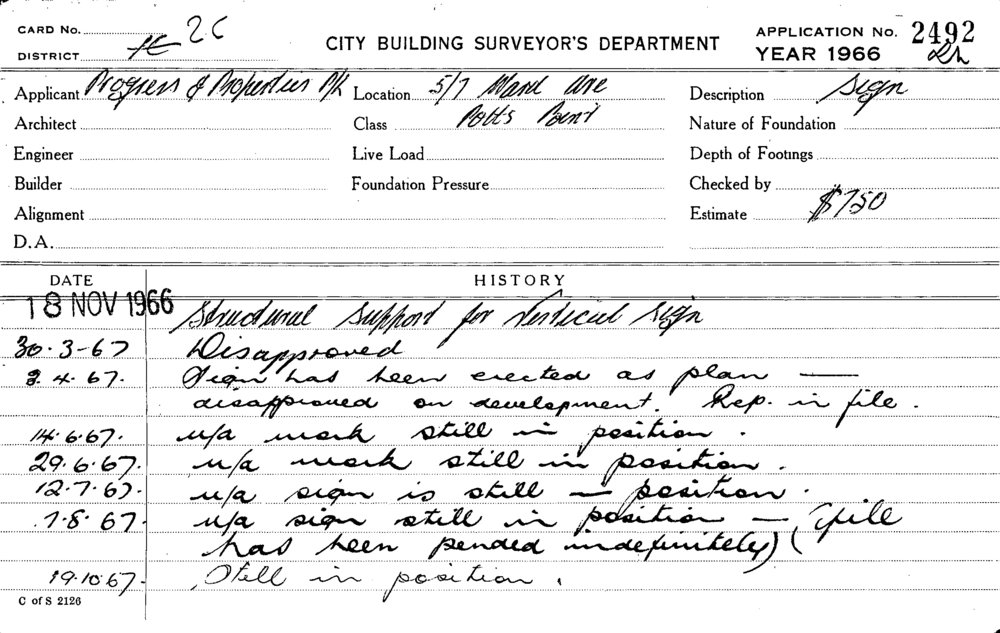 CARD No. 2C
DISTRICT
CITY BUILDING SURVEYOR'S DEPARTMENT
APPLICATION No. 2492
YEAR 1966
Applicant Progress & Properties P/L Location 5/7 Ward Ave Description Sign
Architect Class Potts Point Nature of Foundation
Engineer Live Load Depth of Footings
Builder Foundation Pressure Checked by
Alignment Estimate $750
D.A.
DATE HISTORY
18 NOV 1966 Structural Support for Vertical Sign
30.3-67 Disapproved
3.4.67. Sign has been erected as plan —
disapproved on development. Rep. in file.
14.6.67. u/a work still in position.
29.6.67. u/a work still in position.
12.7.67. u/a sign is still in position.
1.8.67. u/a sign still in position — (file
has been pended indefinitely)
19.10.67. Still in position.
C of S 2126